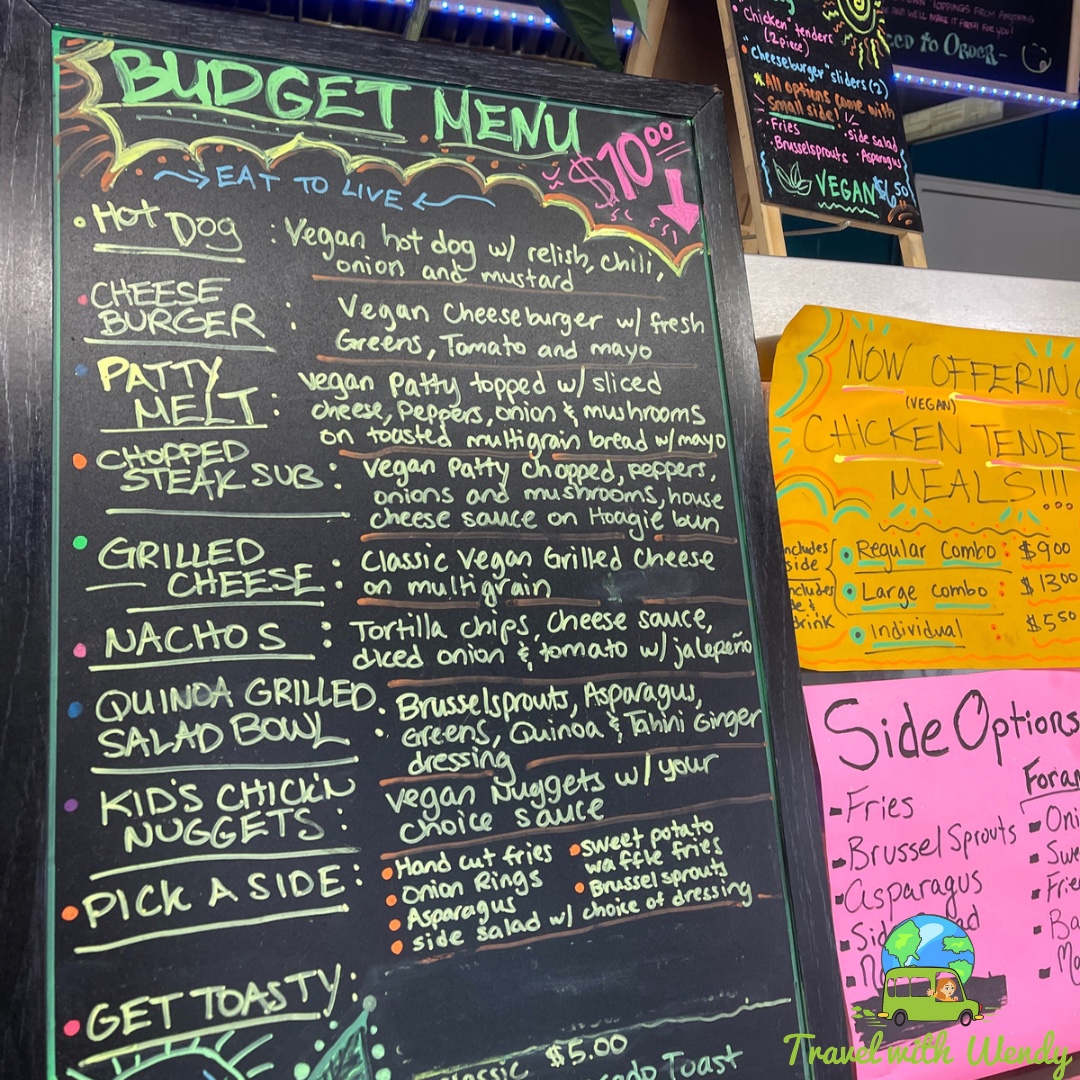 BUDGET MENU
$10.00
EAT TO LIVE
HOT DOG : Vegan hot dog w/ relish, chili,
onion and mustard
CHEESE
BURGER : Vegan Cheeseburger w/ fresh
Greens, Tomato and mayo
PATTY
MELT : Vegan Patty topped w/ sliced
cheese, peppers, onion & mushrooms
on toasted multigrain bread w/ mayo
CHOPPED
STEAK SUB : Vegan Patty chopped, peppers,
onions and mushrooms, house
cheese sauce on Hoagie bun
GRILLED
CHEESE : Classic Vegan Grilled Cheese
on multigrain
NACHOS : Tortilla chips, cheese sauce,
diced onion & tomato w/ jalepeño
QUINOA GRILLED
SALAD BOWL : Brusselsprouts, Asparagus,
Greens, Quinoa & Tahini Ginger
dressing
KID'S CHICK'N
NUGGETS : Vegan Nuggets w/ your
choice sauce
PICK A SIDE :
Hand cut fries
Onion Rings
Asparagus
side salad w/ choice of dressing
sweet potato
waffle fries
Brusselsprouts
GET TOASTY :
$5.00
Toast
"Chicken" tenders
(2 piece)
"Cheeseburger" sliders (2)
All options come with
small side!
Fries
side salad
Brusselsprouts
Asparagus
VEGAN $6.50
TOPPINGS FROM ANYTHING
AND WE'LL MAKE IT FRESH FOR YOU!
TO ORDER-
NOW OFFERING
(VEGAN)
CHICKEN TENDE
MEALS!!!
Regular Combo : $9.00
Large combo : $13.00
Individual : $5.50
side
drink
Side Options
Fries
Brussel Sprouts
Asparagus
Travel with Wendy